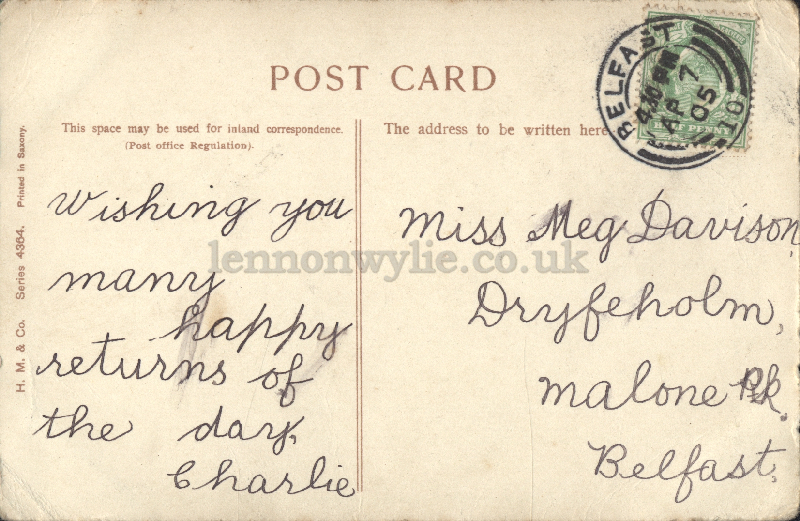 POST CARD
This space may be used for inland correspondence.
(Post office Regulation).
The address to be written here
H. M. & Co. Series 4364. Printed in Saxony.
BELFAST
4.30 PM
AP 7
05
10
Wishing you
many
happy
returns of
the day.
Charlie
Miss Meg Davison,
Dryfeholm,
Malone Pk.
Belfast.
lennonwylie.co.uk